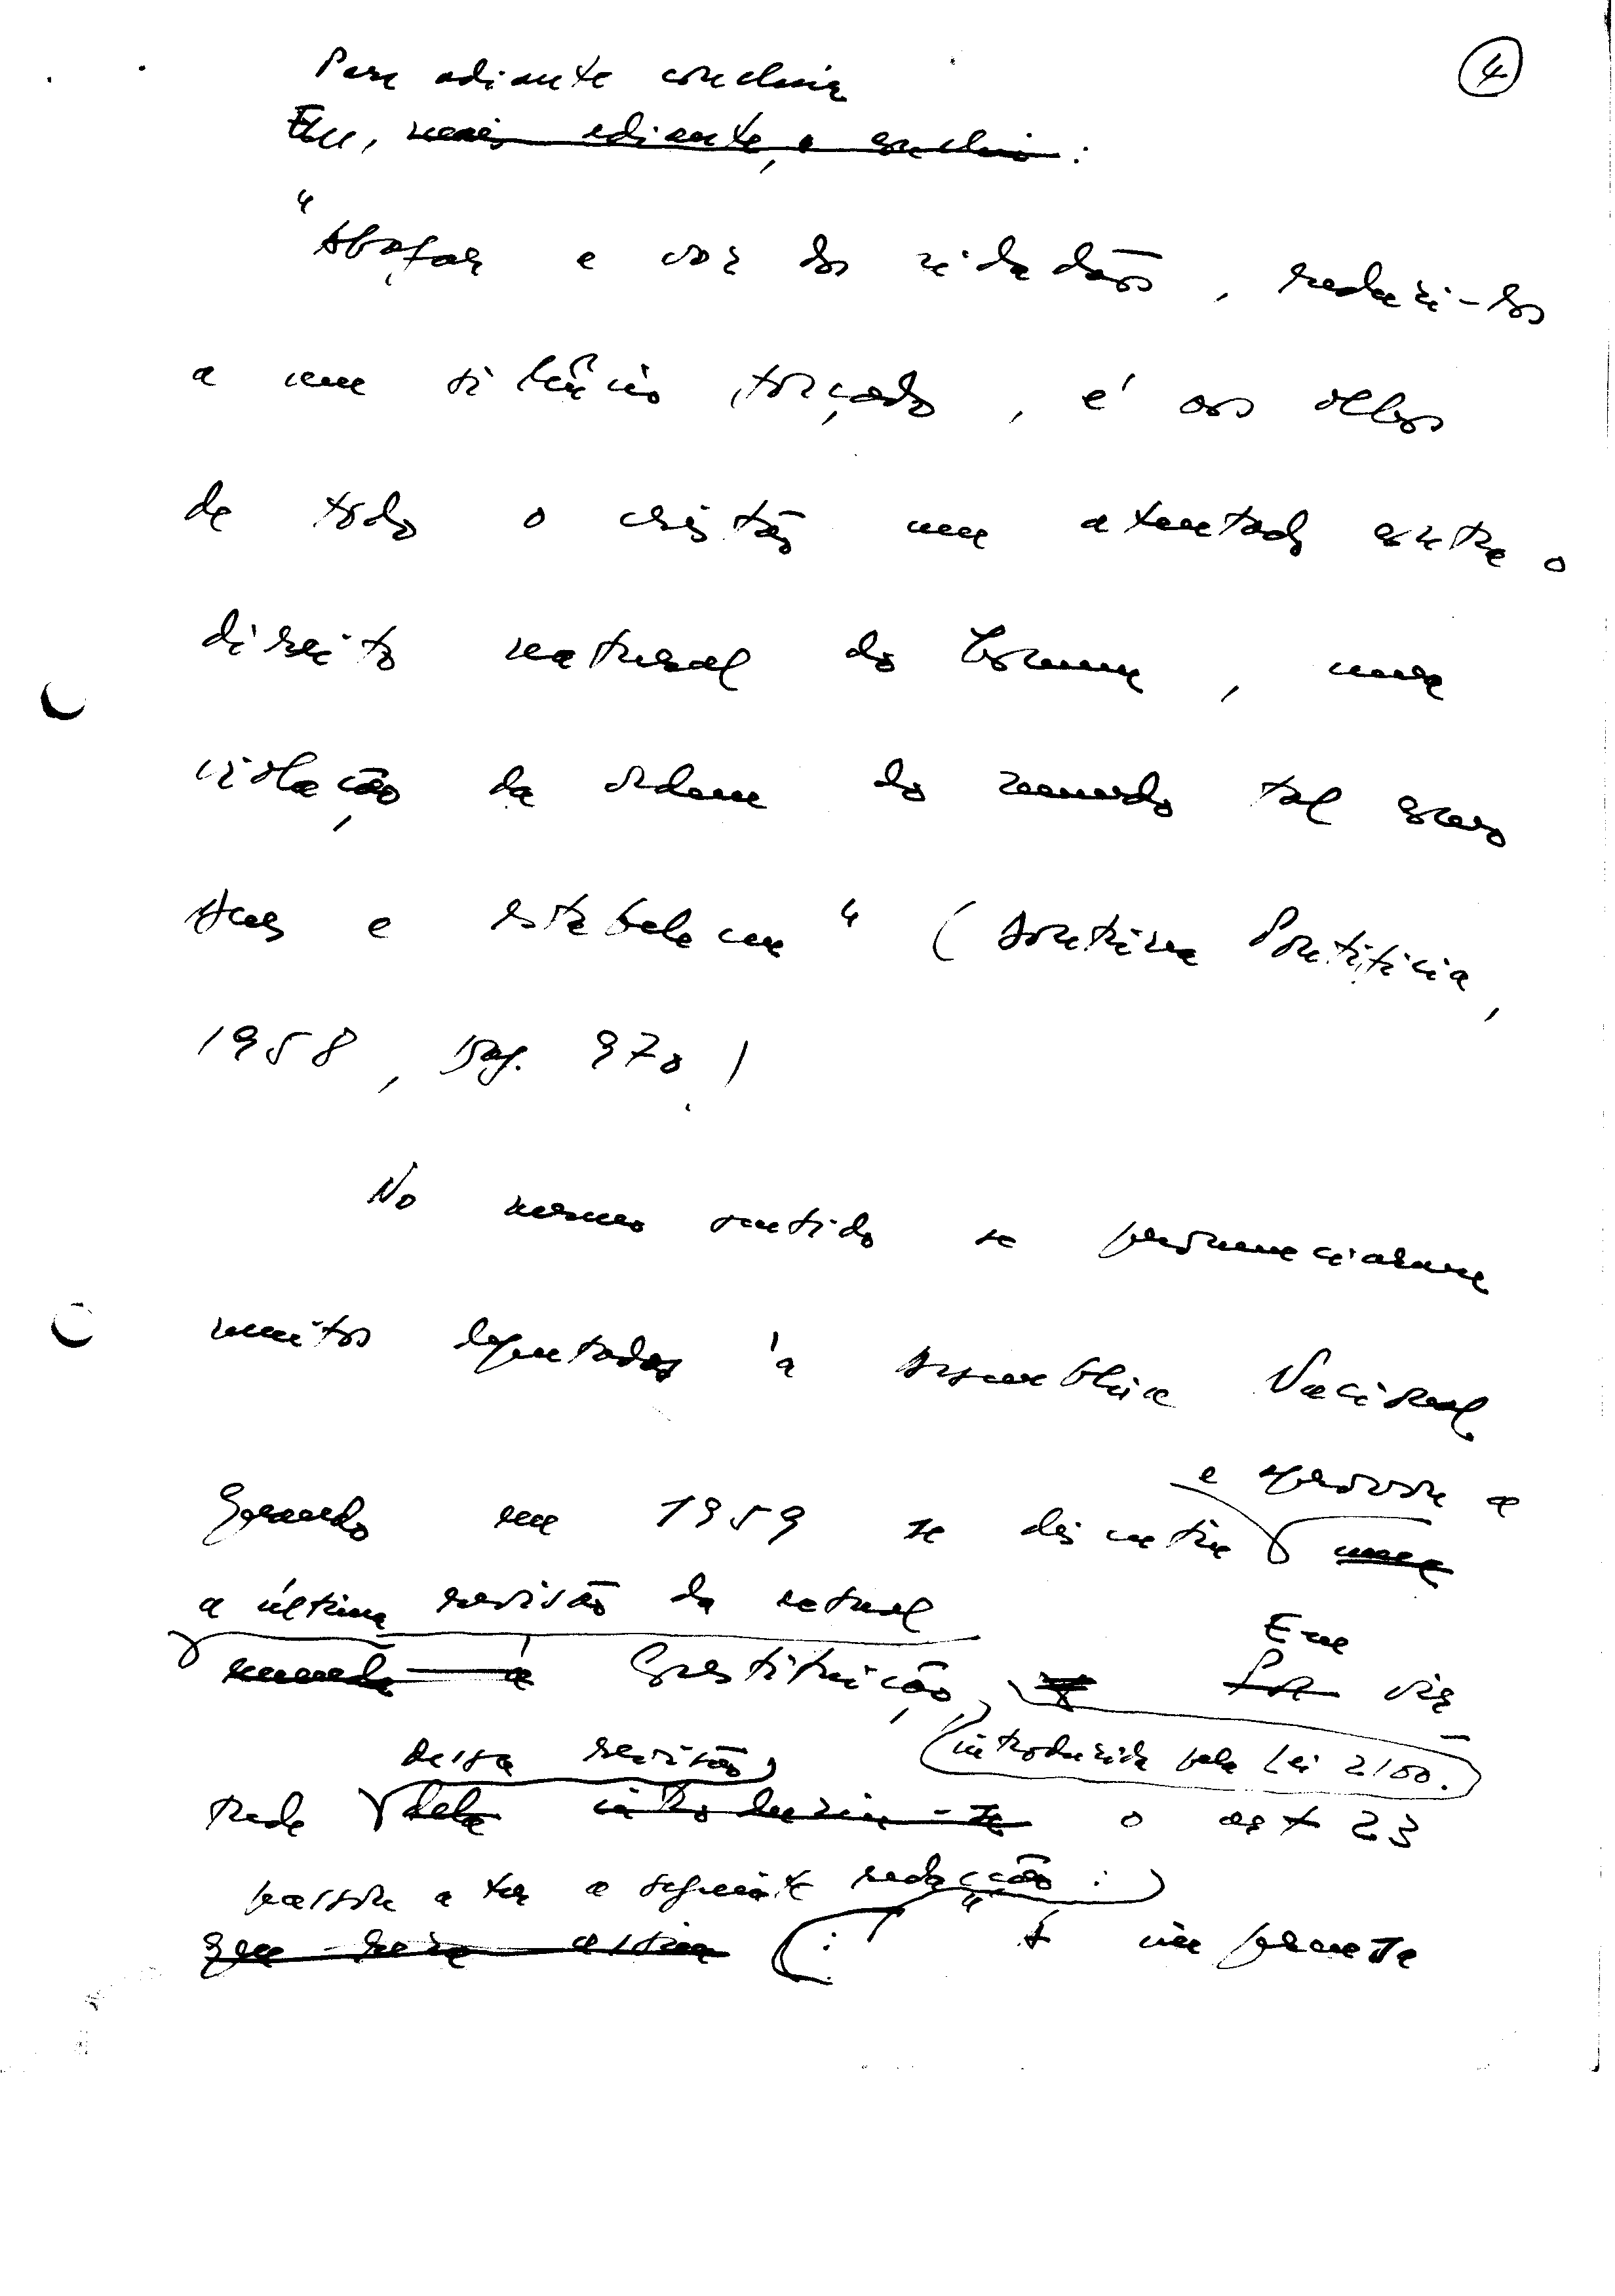 4
Para adiante concluir
Em, mais adiante, concluir :
"Abafar a voz dos cidadãos, reduzi-los
a um silêncio forçado, é aos olhos
de todo o cristão um atentado contra o
direito natural do homem, uma
violação da ordem do mundo tal como
Deus a estabeleceu" (Doutrina Pontifícia,
1958, pag. 970)
No mesmo sentido se pronunciaram
muitos deputados à Assembleia Nacional
e aprovou a
quando em 1959 se discutiu uma
a última revisão da actual
à Constituição
Em
Por vir
introduzida pela Lei 2100.
dessa revisão
tude dela introduziu-se o art 23
passou a ter a seguinte redacção :
que reza assim : " A imprensa